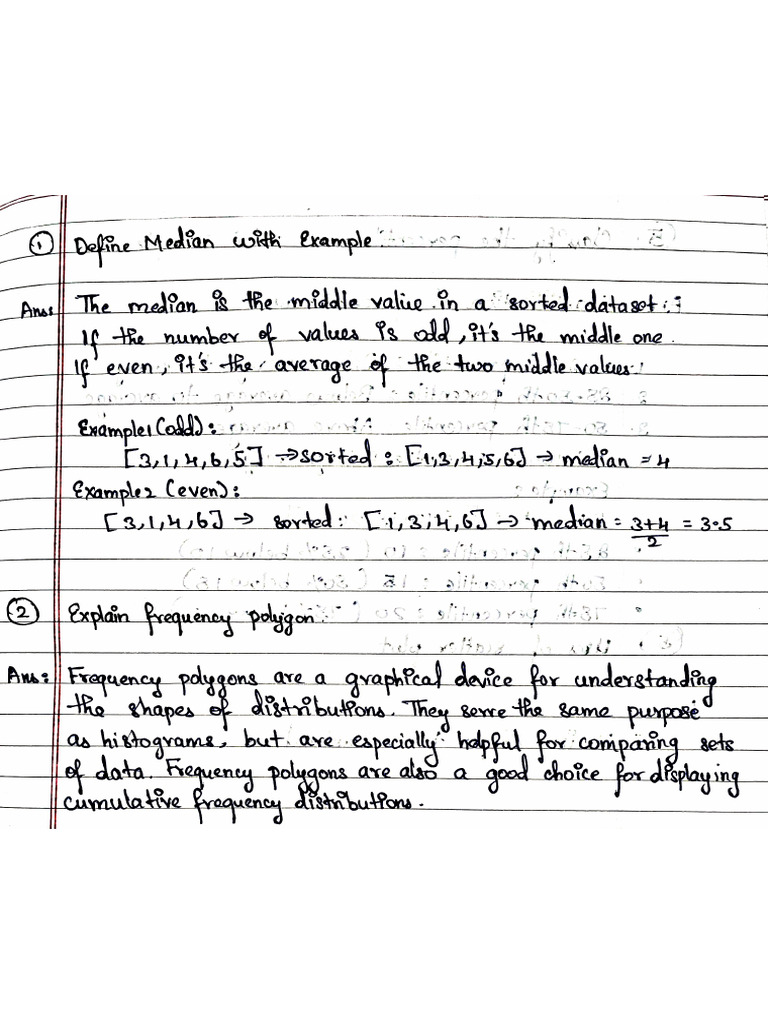 ① Define Median with Example
Ans: The median is the middle value in a sorted dataset:
If the number of values is odd, it's the middle one.
If even, it's the average of the two middle values.
Example1 (odd):
[3,1,4,6,5] → sorted: [1,3,4,5,6] → median = 4
Example2 (even):
[3,1,4,6] → sorted: [1,3,4,6] → median = 3+4/2 = 3.5
② Explain frequency polygon.
Ans: Frequency polygons are a graphical device for understanding
the shapes of distributions. They serve the same purpose
as histograms, but are especially helpful for comparing sets
of data. Frequency polygons are also a good choice for displaying
cumulative frequency distributions.